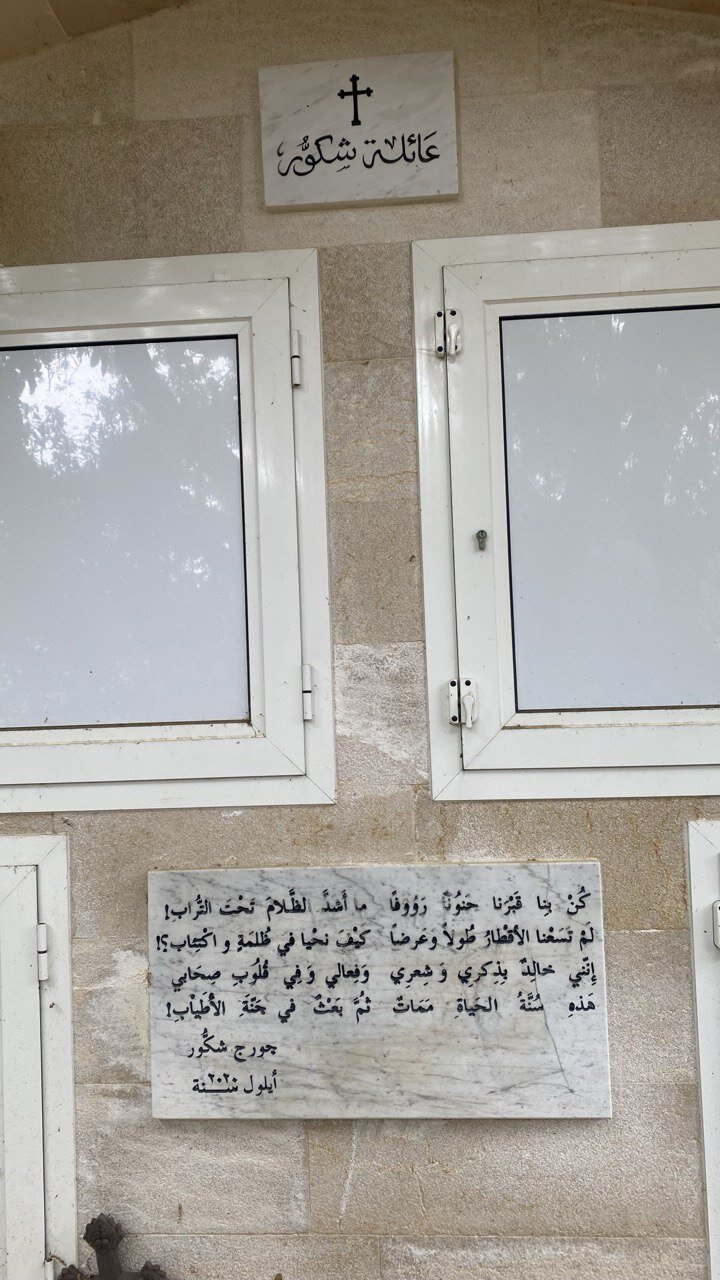 عَائلة شكوُّر
كُنْ بِنا قَبْرَنا حَنُونًا رَؤُوفًا ما أَشدَّ الظَّلامَ تَحْتَ التُّراب!
لَمْ تَسَعْنا الأقْطارُ طُولاً وَعَرضاً كيْفَ نحْيا في ظُلمَةٍ و اكْتِئاب؟!
إِنَّني خالِدٌ بِذِكري وَ شِعري وَفِعالي وَفي قُلُوبِ صِحَابي
هَذهِ سُنَّةُ الحَياةِ مَمَاتٌ ثُمَّ بَعْثٌ في جَنَّةِ الأَطْيابِ!
جورج شكُّور
أيلول سنة ٢٠٢٠